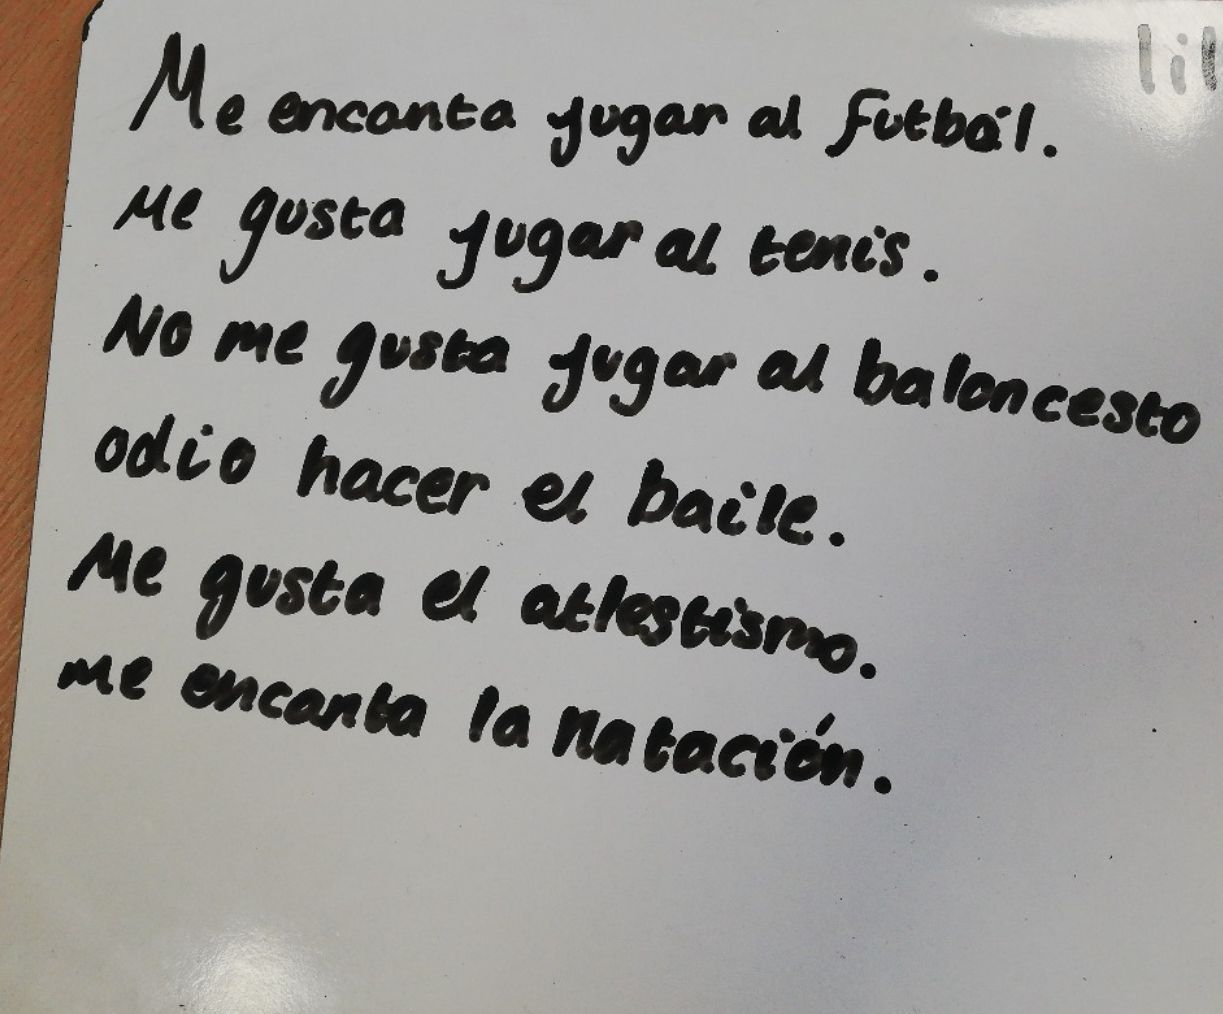 Me encanta jugar al futbál.
Me gusta jugar al tenis.
No me gusta jugar al baloncesto
odio hacer el baile.
Me gusta el atlestismo.
me encanta la natación.